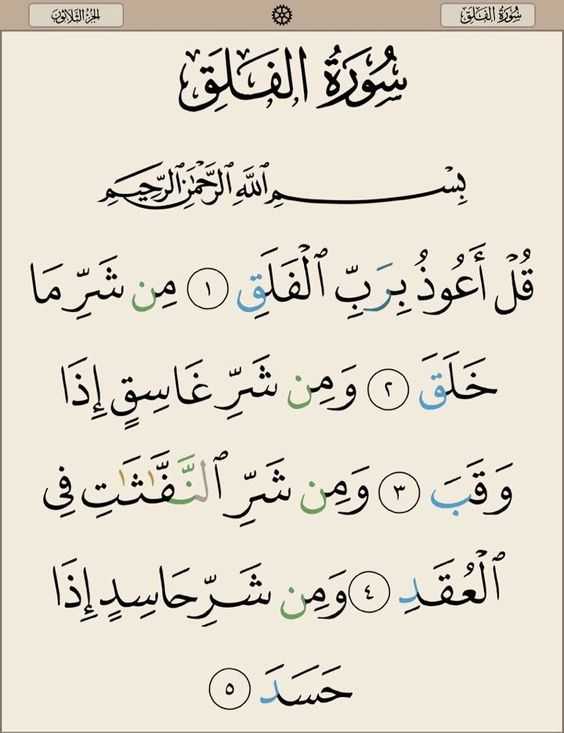 سُورَةُ الفَلَقِ
الجزء الثلاثون
سُورَةُ الفَلَقِ
بِسْمِ ٱللَّهِ ٱلرَّحْمَٰنِ ٱلرَّحِيمِ
قُلْ أَعُوذُ بِرَبِّ ٱلْفَلَقِ ١ مِن شَرِّ مَا
خَلَقَ ٢ وَمِن شَرِّ غَاسِقٍ إِذَا
وَقَبَ ٣ وَمِن شَرِّ ٱلنَّفَّٰثَٰتِ فِى
ٱلْعُقَدِ ٤ وَمِن شَرِّ حَاسِدٍ إِذَا
حَسَدَ ٥